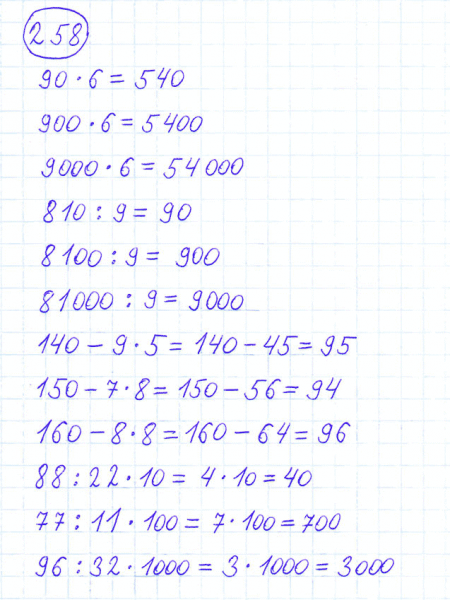 258
90 · 6 = 540
900 · 6 = 5400
9000 · 6 = 54000
810 : 9 = 90
8100 : 9 = 900
81000 : 9 = 9000
140 - 9 · 5 = 140 - 45 = 95
150 - 7 · 8 = 150 - 56 = 94
160 - 8 · 8 = 160 - 64 = 96
88 : 22 · 10 = 4 · 10 = 40
77 : 11 · 100 = 7 · 100 = 700
96 : 32 · 1000 = 3 · 1000 = 3000